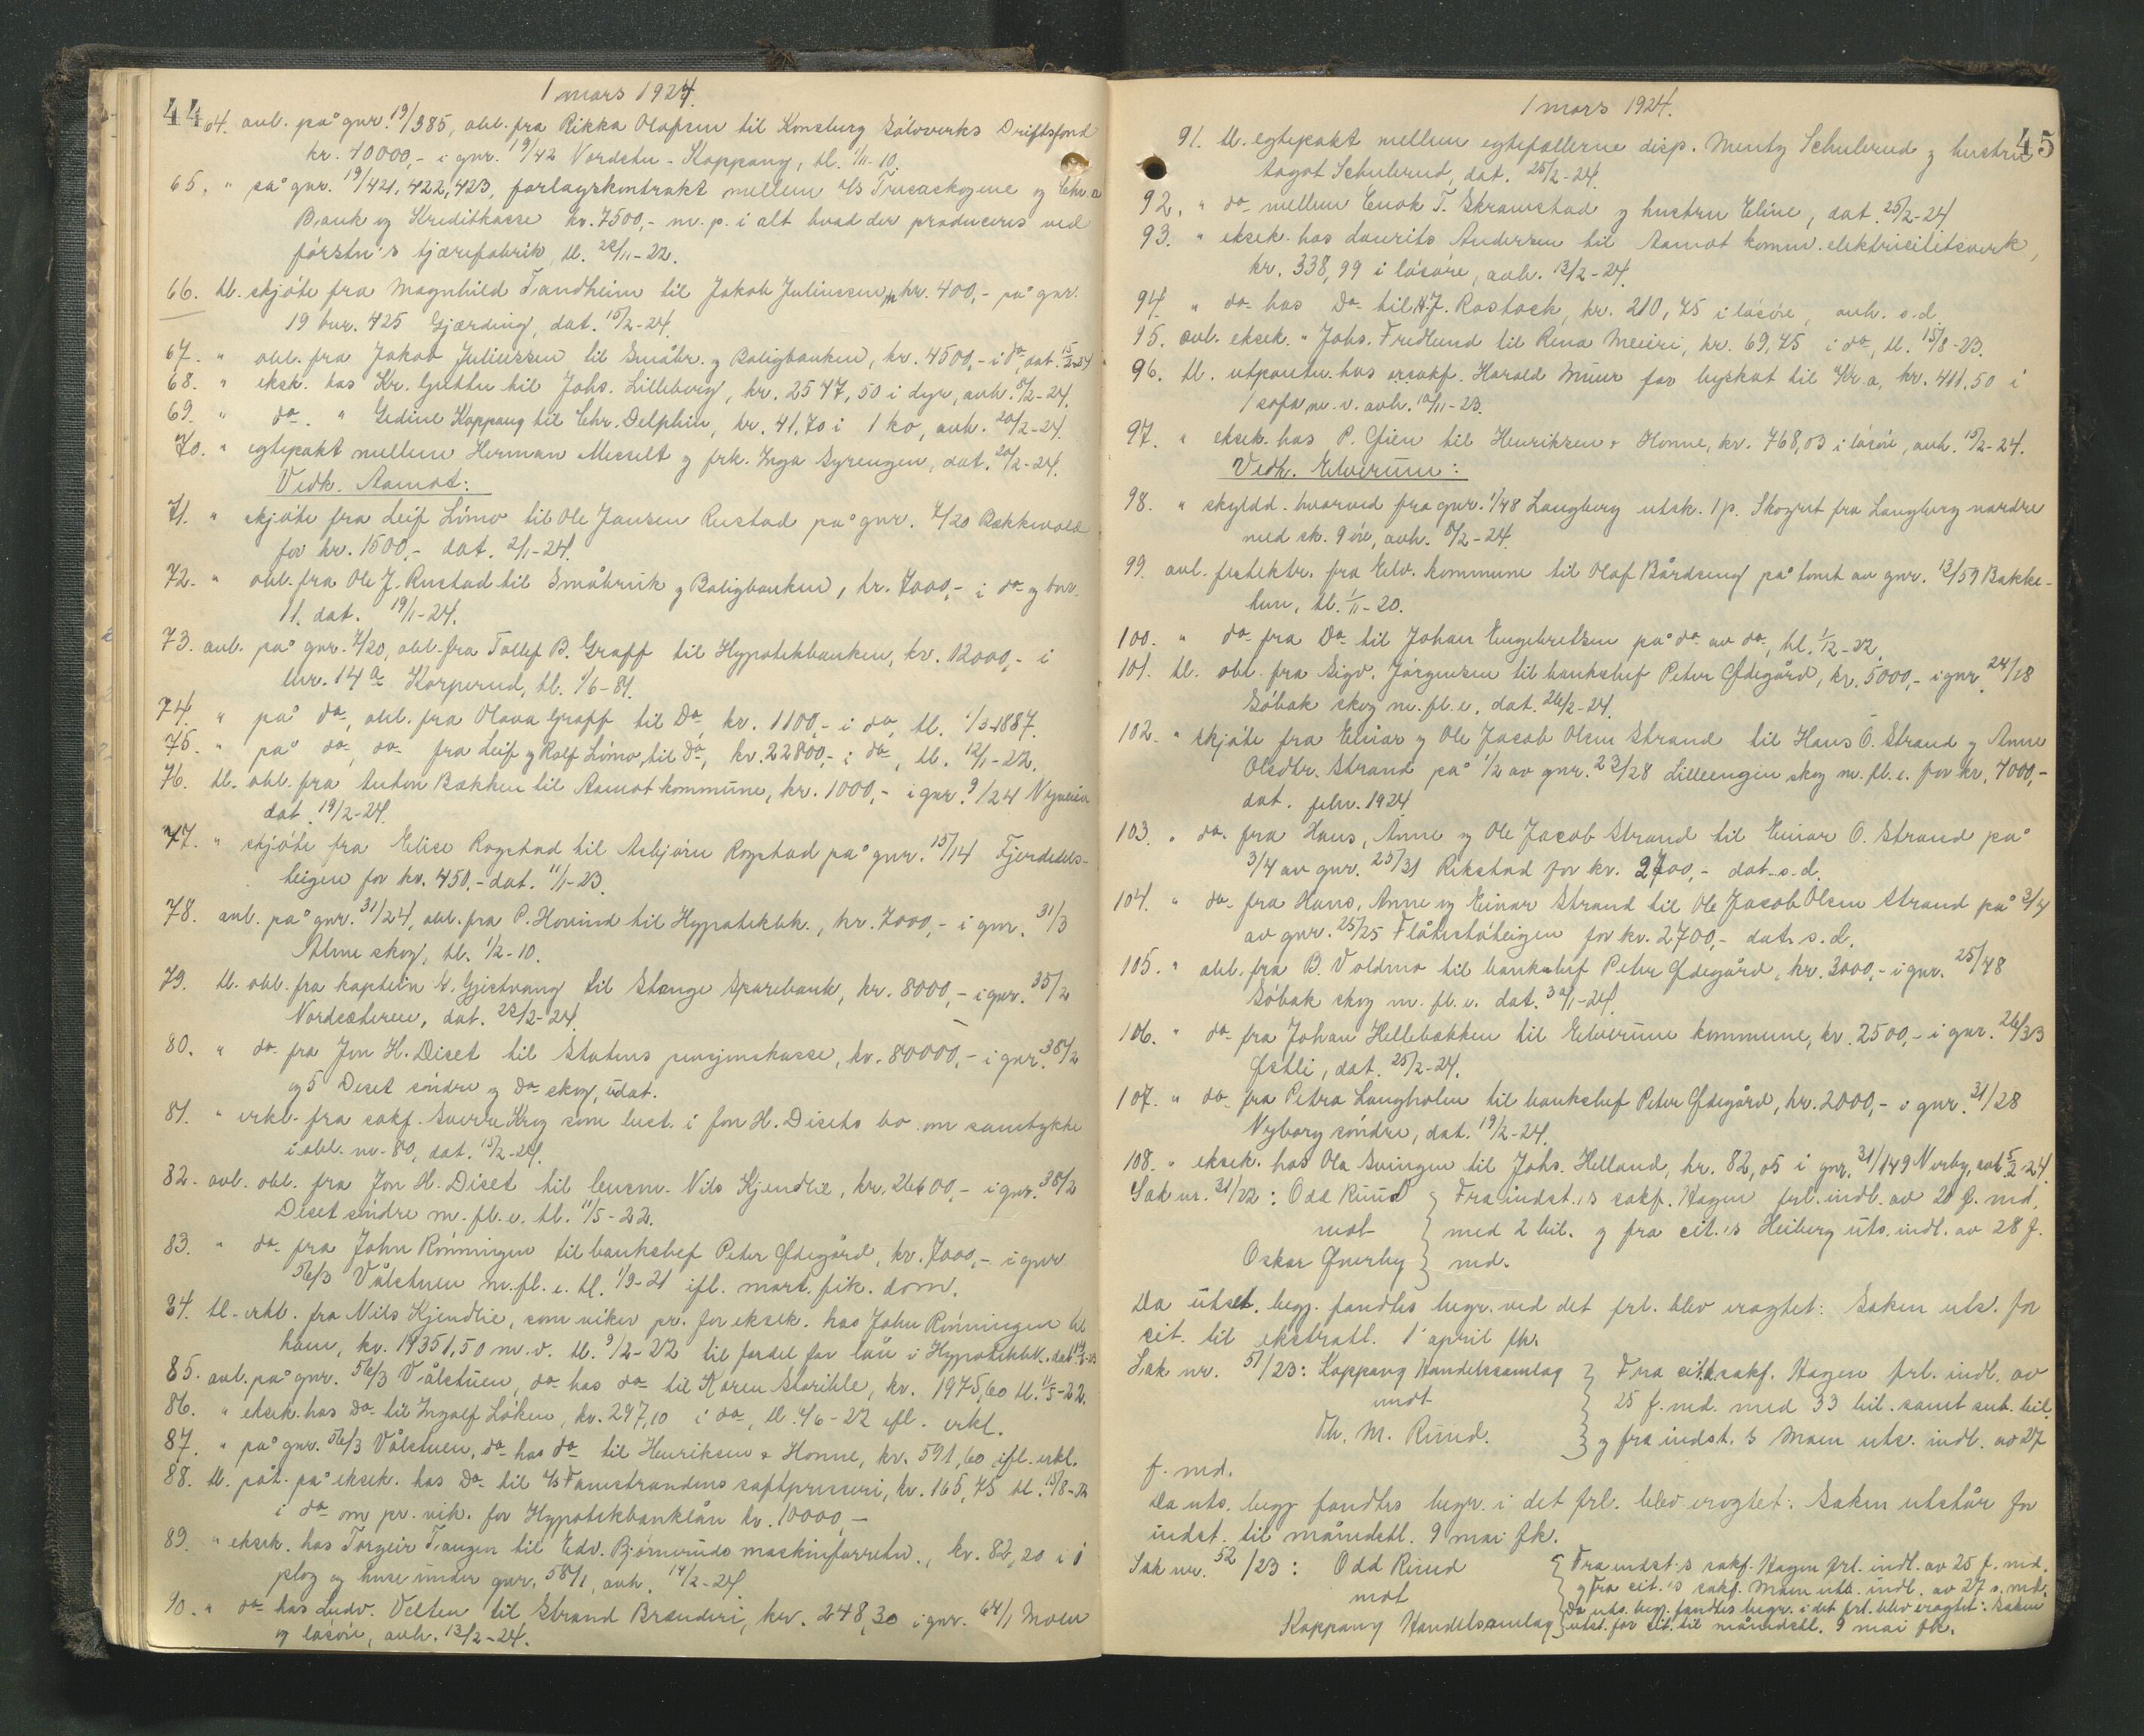 44
1 mars 1924.
64. avl. på gnr. 19/385, obl. fra Rikka Olafsen til Konsberg Sølvverks Driftsfond
kr. 40000,- i gnr. 19/42 Nordstu - Koppang, tl. 1/11-10.
65. " på gnr. 19/421, 422, 423, forlagskontrakt mellem A/S Trысaskogene og Chr.a
Bank og Kreditkasse kr. 7500,- m. p. i alt hvad der produceres ved
førstn's tjærefabrik, tl. 22/11-22.
66. tl. skjøte fra Magnhild Tandheim til Jakob Juliussen, kr. 400,- på gnr.
19 bnr. 425 Gjærding, dat. 15/2-24.
67. " obl. fra Jakob Juliussen til Småbr. g Boligbanken, kr. 4500,- i do, dat. 15/2-24
68. " eksk. hos Kr. Guttu til Johs. Lilleberg, kr. 2547,50 i dyr, avh. 8/2-24.
69. " do. " Gedine Koppang til Chr. Delphin, kr. 41,70 i 1 ko, avh. 20/2-24.
70. " egtepakt mellem Herman Messelt g frk. Inga Byrengen, dat. 20/2-24.
Vedk. Aamot:
71. " skjøte fra Leif Limo til Ole Jansen Rustad på gnr. 4/20 Bækkevold
for kr. 1500,- dat. 2/1-24.
72. " obl. fra Ole J. Rustad til Småbruk g Boligbanken, kr. 7000,- i do g bnr.
11. dat. 19/1-24.
73. avl. på gnr. 4/20, obl. fra Tollef B. Graff til Hypotekbanken, kr. 12000,- i
bnr. 14 a Korperud, tl. 1/6-81.
74. " på do, obl. fra Olava Graff til Do, kr. 1100,- i do, tl. 1/3-1887.
75. " på do, do fra Leif g Rolf Limo, til Do, kr. 22800,- i do, tl. 12/1-22.
76. tl. obl. fra Anton Bækken til Aamot kommune, kr. 1000,- i gnr. 9/24 Nymoen
dat. 19/2-24.
77. " skjøte fra Elise Rogstad til Asbjørn Rogstad på gnr. 15/14 Fjerdedels-
teigen for kr. 450,- dat. 11/1-23.
78. avl. på gnr. 31/24, obl. fra P. Hovind til Hypotekbk., kr. 7000,- i gnr. 31/3
Alme skog, tl. 1/2-10.
79. tl. obl. fra kaptein Gjestvang til Stange Sparebank, kr. 8000,- i gnr. 35/2
Nordsæteren, dat. 22/2-24.
80. " do fra Jon H. Diset til Statens pensjonskasse, kr. 80000,- i gnr. 38/2
og 5 Deset søndre g Do skog, udat.
81. " erkl. fra sakf. Sverre Krog som best. i Jon H. Disets bo om samtykke
i obl. nr. 80, dat. 15/2-24.
82. avl. obl. fra Jon H. Diset til lensm. Nils Kjendlie, kr. 26600,- i gnr. 38/2
Deset søndre m. fl. e. tl. 11/5-22.
83. " do fra John Rønningen til bankchef Peter Ødegård, kr. 7000,- i gnr
56/3 Vålstuen m. fl. e. tl. 1/9-21 ifl. mort. fik. dom.
84. tl. erkl. fra Nils Kjendlie, som viker pr. for eksek. hos John Rønningen til
ham, kr. 14351,50 m. v. tl. 9/2-22 til fordel for lån i Hypotekbk.
85. avl. på gnr. 56/3 Vålstuen, do hos do til Karen Storihle, kr. 1975,60 tl. 11/5-22.
86. " eksek. hos Do til Ingolf Løken, kr. 297,10 i do, tl. 4/6-22 ifl. erkl.
87. " på gnr. 56/3 Vålstuen, do hos do til Henriksen & Honne, kr. 591,60 ifl. erkl.
88. tl. påt. på eksek. hos Do til A/S Tamstrandens saftpresseri, kr. 165,75 tl. 15/8-22
i do om pr. vik. for Hypotekbanklån kr. 10000,-
89. " eksek. hos Torgeir Tangen til Edv. Bjørneruds maskinforretn., kr. 82,20 i 1
plog og huse under gnr. 58/1, avh. 14/2-24.
90. " do hos Ludv. Velten til Strand Brænderi, kr. 248,30 i gnr. 64/1 Moen
og løsøre, avh. 13/2-24.
45
1 mars 1924.
91. tl. egtepakt mellem egtefællerne disp. Mentz Schulerud g hustru
Dagot Schulerud, dat. 25/2-24.
92. " do mellem Enok T. Skramstad g hustru Eline, dat. 25/2-24
93. " eksek. hos Laurits Andersen til Aamot komm. elektricitetsverk,
kr. 338,99 i løsøre, avh. 13/2-24.
94. " do hos Do til H.J. Rostock, kr. 210,75 i løsøre, avh. s.d.
95. avl. eksek. " Johs. Fredlund til Rena Meieri, kr. 69,45 i do, tl. 15/8-23.
96. tl. utpantn. hos o.r.sakf. Harald Muur for byskat til Kr.a, kr. 411,50 i
1 sofa m. v. avh. 10/11-23.
97. " eksek. hos P. Øien til Henriksen & Honne, kr. 768,03 i løsøre, avh. 15/2-24.
Vedk. Elverum:
98. " skyldd. hvorved fra gnr. 1/48 Langberg utsk. 1 p. Skogset fra Langberg nordre
med sk. 9 øre, avh. 8/2-24.
99. avl. festektr. fra Elv. kommune til Olaf Bårdseng på tomt av gnr. 13/59 Bakke-
tun, tl. 1/11-20.
100. " do fra Do til Johan Engebretsen på do av do, tl. 1/12-22.
101. tl. obl. fra Sigv. Jørgensen til bankchef Peter Ødegård, kr. 5000,- i gnr. 24/18
Søbak skog m. fl. e. dat. 26/2-24.
102. " skjøte fra Einar g Ole Jacob Olsen Strand til Hans O. Strand g Anne
Olsdtr. Strand på 1/2 av gnr. 23/28 Lilleengen skog m. fl. e. for kr. 4000,-
dat. febr. 1924
103. " do fra Hans, Anne og Ole Jacob Strand til Einar O. Strand på
3/4 av gnr. 25/31 Rikstad for kr. 2700,- dat. s.d.
104. " do fra Hans, Anne og Einar Strand til Ole Jacob Olsen Strand på 3/4
av gnr. 25/25 Flåtestøteigen for kr. 2700,- dat. s.d.
105. " obl. fra B. Voldmo til bankchef Peter Ødegård, kr. 3000,- i gnr. 25/48
Søbak skog m. fl. e. dat. 30/1-24.
106. " do fra Johan Hellebækken til Elverum kommune, kr. 2500,- i gnr. 26/33
Østli, dat. 25/2-24.
107. " do fra Petra Langholen til bankchef Peter Ødegård, kr. 2000,- i gnr. 31/28
Nyborg søndre, dat. 19/2-24.
108. " eksek. hos Ola Svingen til Johs. Helland, kr. 82,05 i gnr. 31/149 Verby, dat 5/2-24.
Sak nr. 31/22: Odd Ruud } Fra indst.'s sakf. Hagen frl. indl. av 20 f. md.
mot } med 2 bil. g fra cit.'s Heiberg uts. indl. av 28 f.
Oskar Qverby } md.
Da utset. begj. fandtes begr. ved det frl. blev eragtet: Saken uts. for
cit. til ekstratl. 1 april fk.
Sak nr. 51/23: Koppang Handelssamlag } Fra cit.'s sakf. Hagen frl. indl. av
mot } 25 f. md. med 33 bil. samt sub. bil.
Th. M. Ruud. } g fra indst.'s Moen uts. indl. av 27
f. md.
Da uts. begj. fandtes begr. i det frl. blev eragtet: Saken utstår for
indst. til månedstl. 9 mai fk.
Sak nr. 52/23: Odd Ruud } Fra indst.'s sakf. Hagen frl. indl. av 25 f. md.
mot } g fra cit.'s sakf. Moen uts. indl. av 27 s. md.
} Da uts. begj. fandtes begr. i det frl. blev eragtet: Saken
Koppang Handelssamlag } utst. for cit. til månedstl. 9 mai fk.